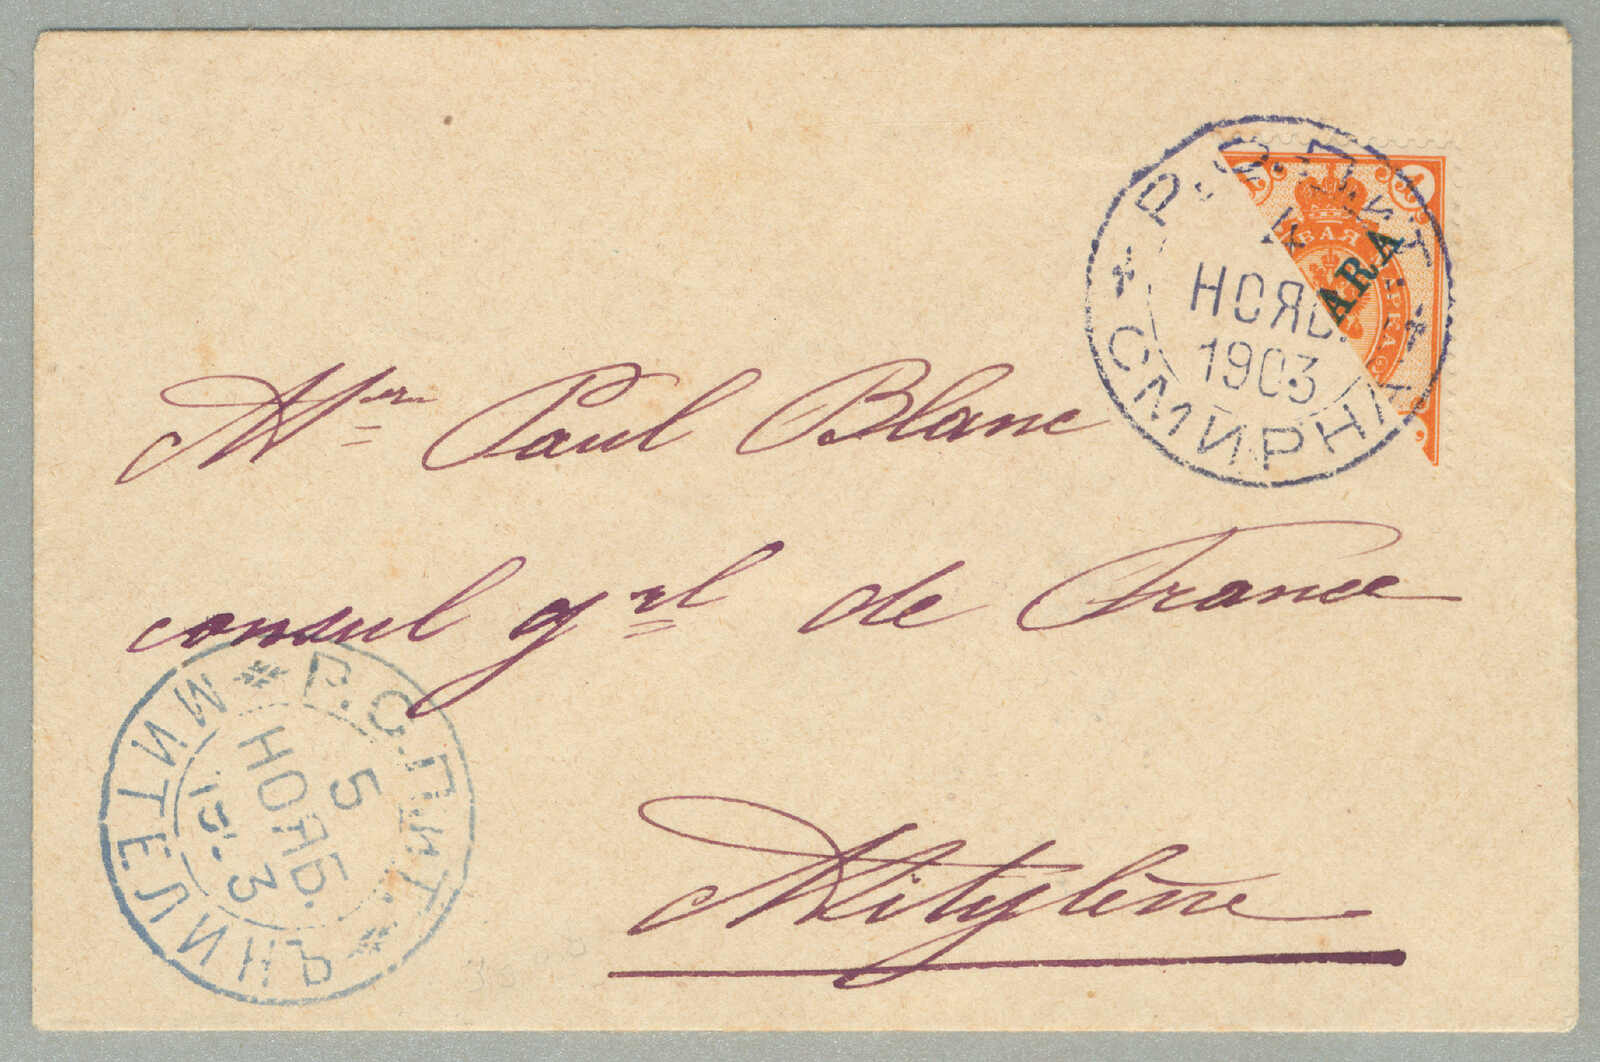 Р.О.ПиТ.
НОЯБ.
1903
СМИРНА
ARA
1
Mr Paul Blanc
consul grl de France
Mitylène
Р.О.П.иТ.
5
НОЯБ.
МИТЕЛИНЪ